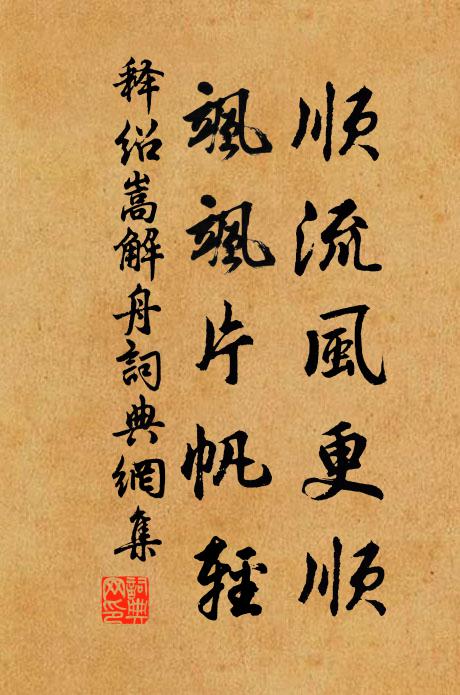 順流風更順
颯颯片帆輕
释紹嵩解舟詞典網集
詞典网印